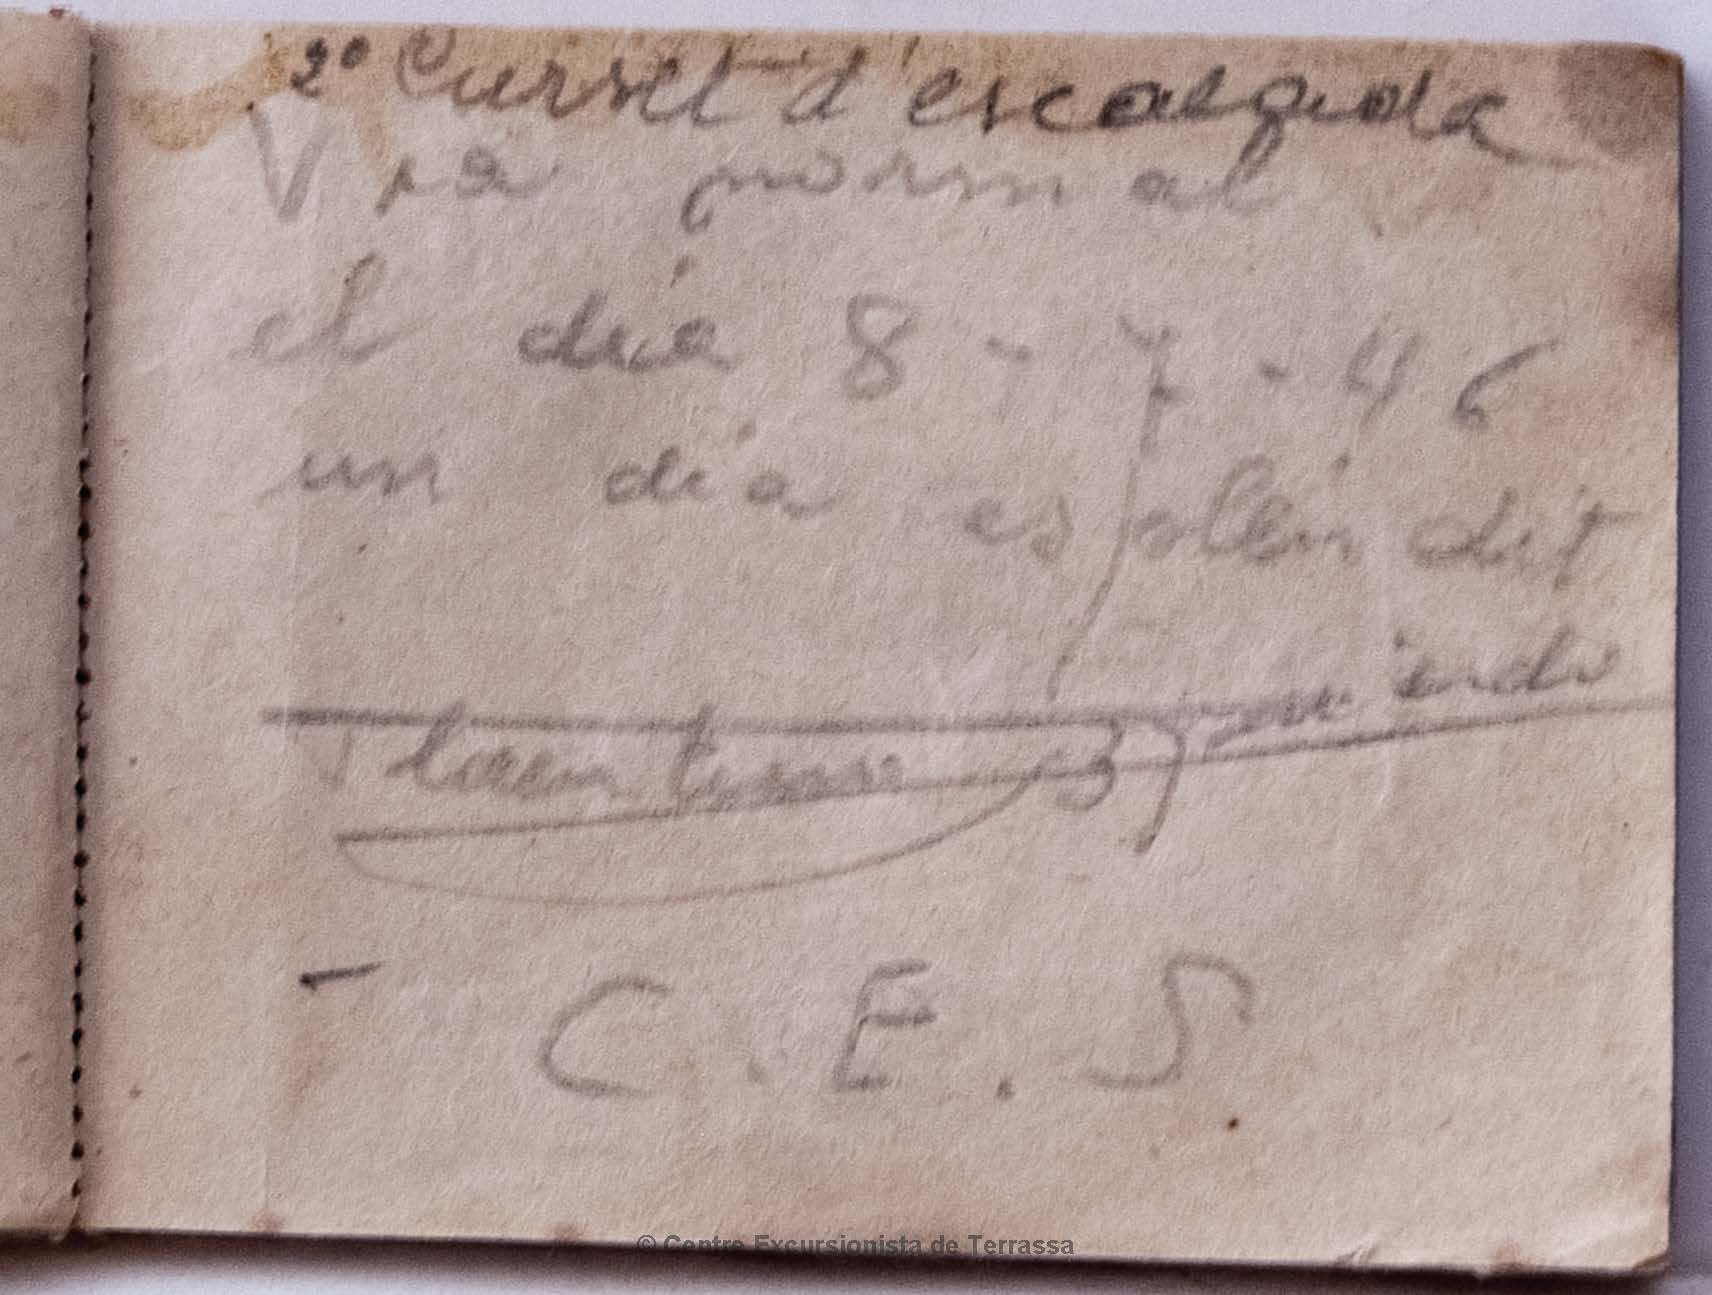 2º Curset d'escalada
Via normal
el día 8-7-46
un día esplendit
C.E.S.
© Centre Excursionista de Terrassa